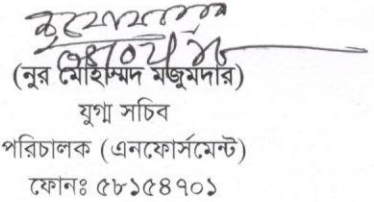 (নুর মোহাম্মদ মজুমদার)
যুগ্ম সচিব
পরিচালক (এনফোর্সমেন্ট)
ফোনঃ ৫৮১৫৪৭০১